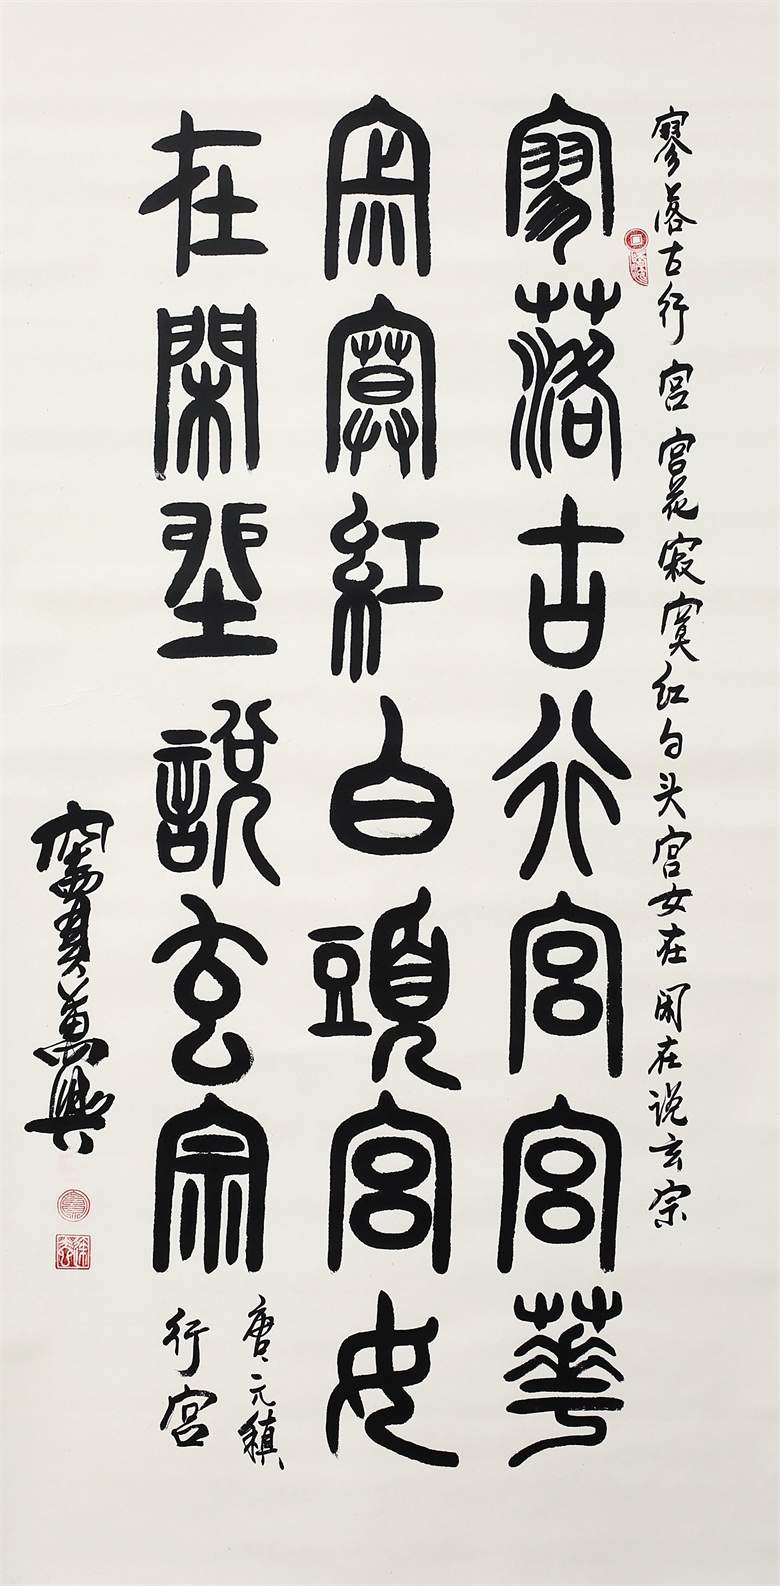 寥落古行宫宫花寂寞红白头宫女在闲在说玄宗
寥落古行宫宫華
寂寞紅白頭宫女
在閑坐說玄宗
唐元稹
行宫